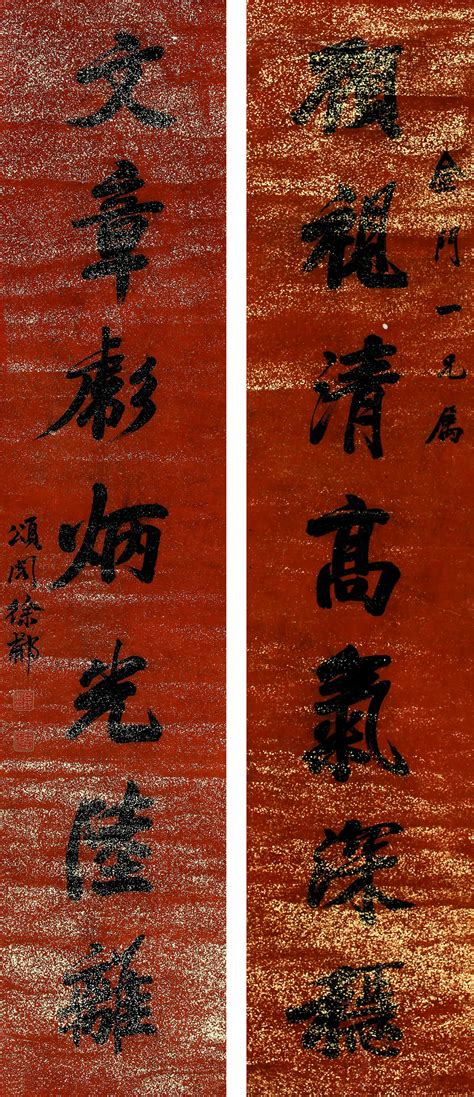 金門一兄属
顧視清高氣深穩
文章彪炳光陸離
頌閣徐郙